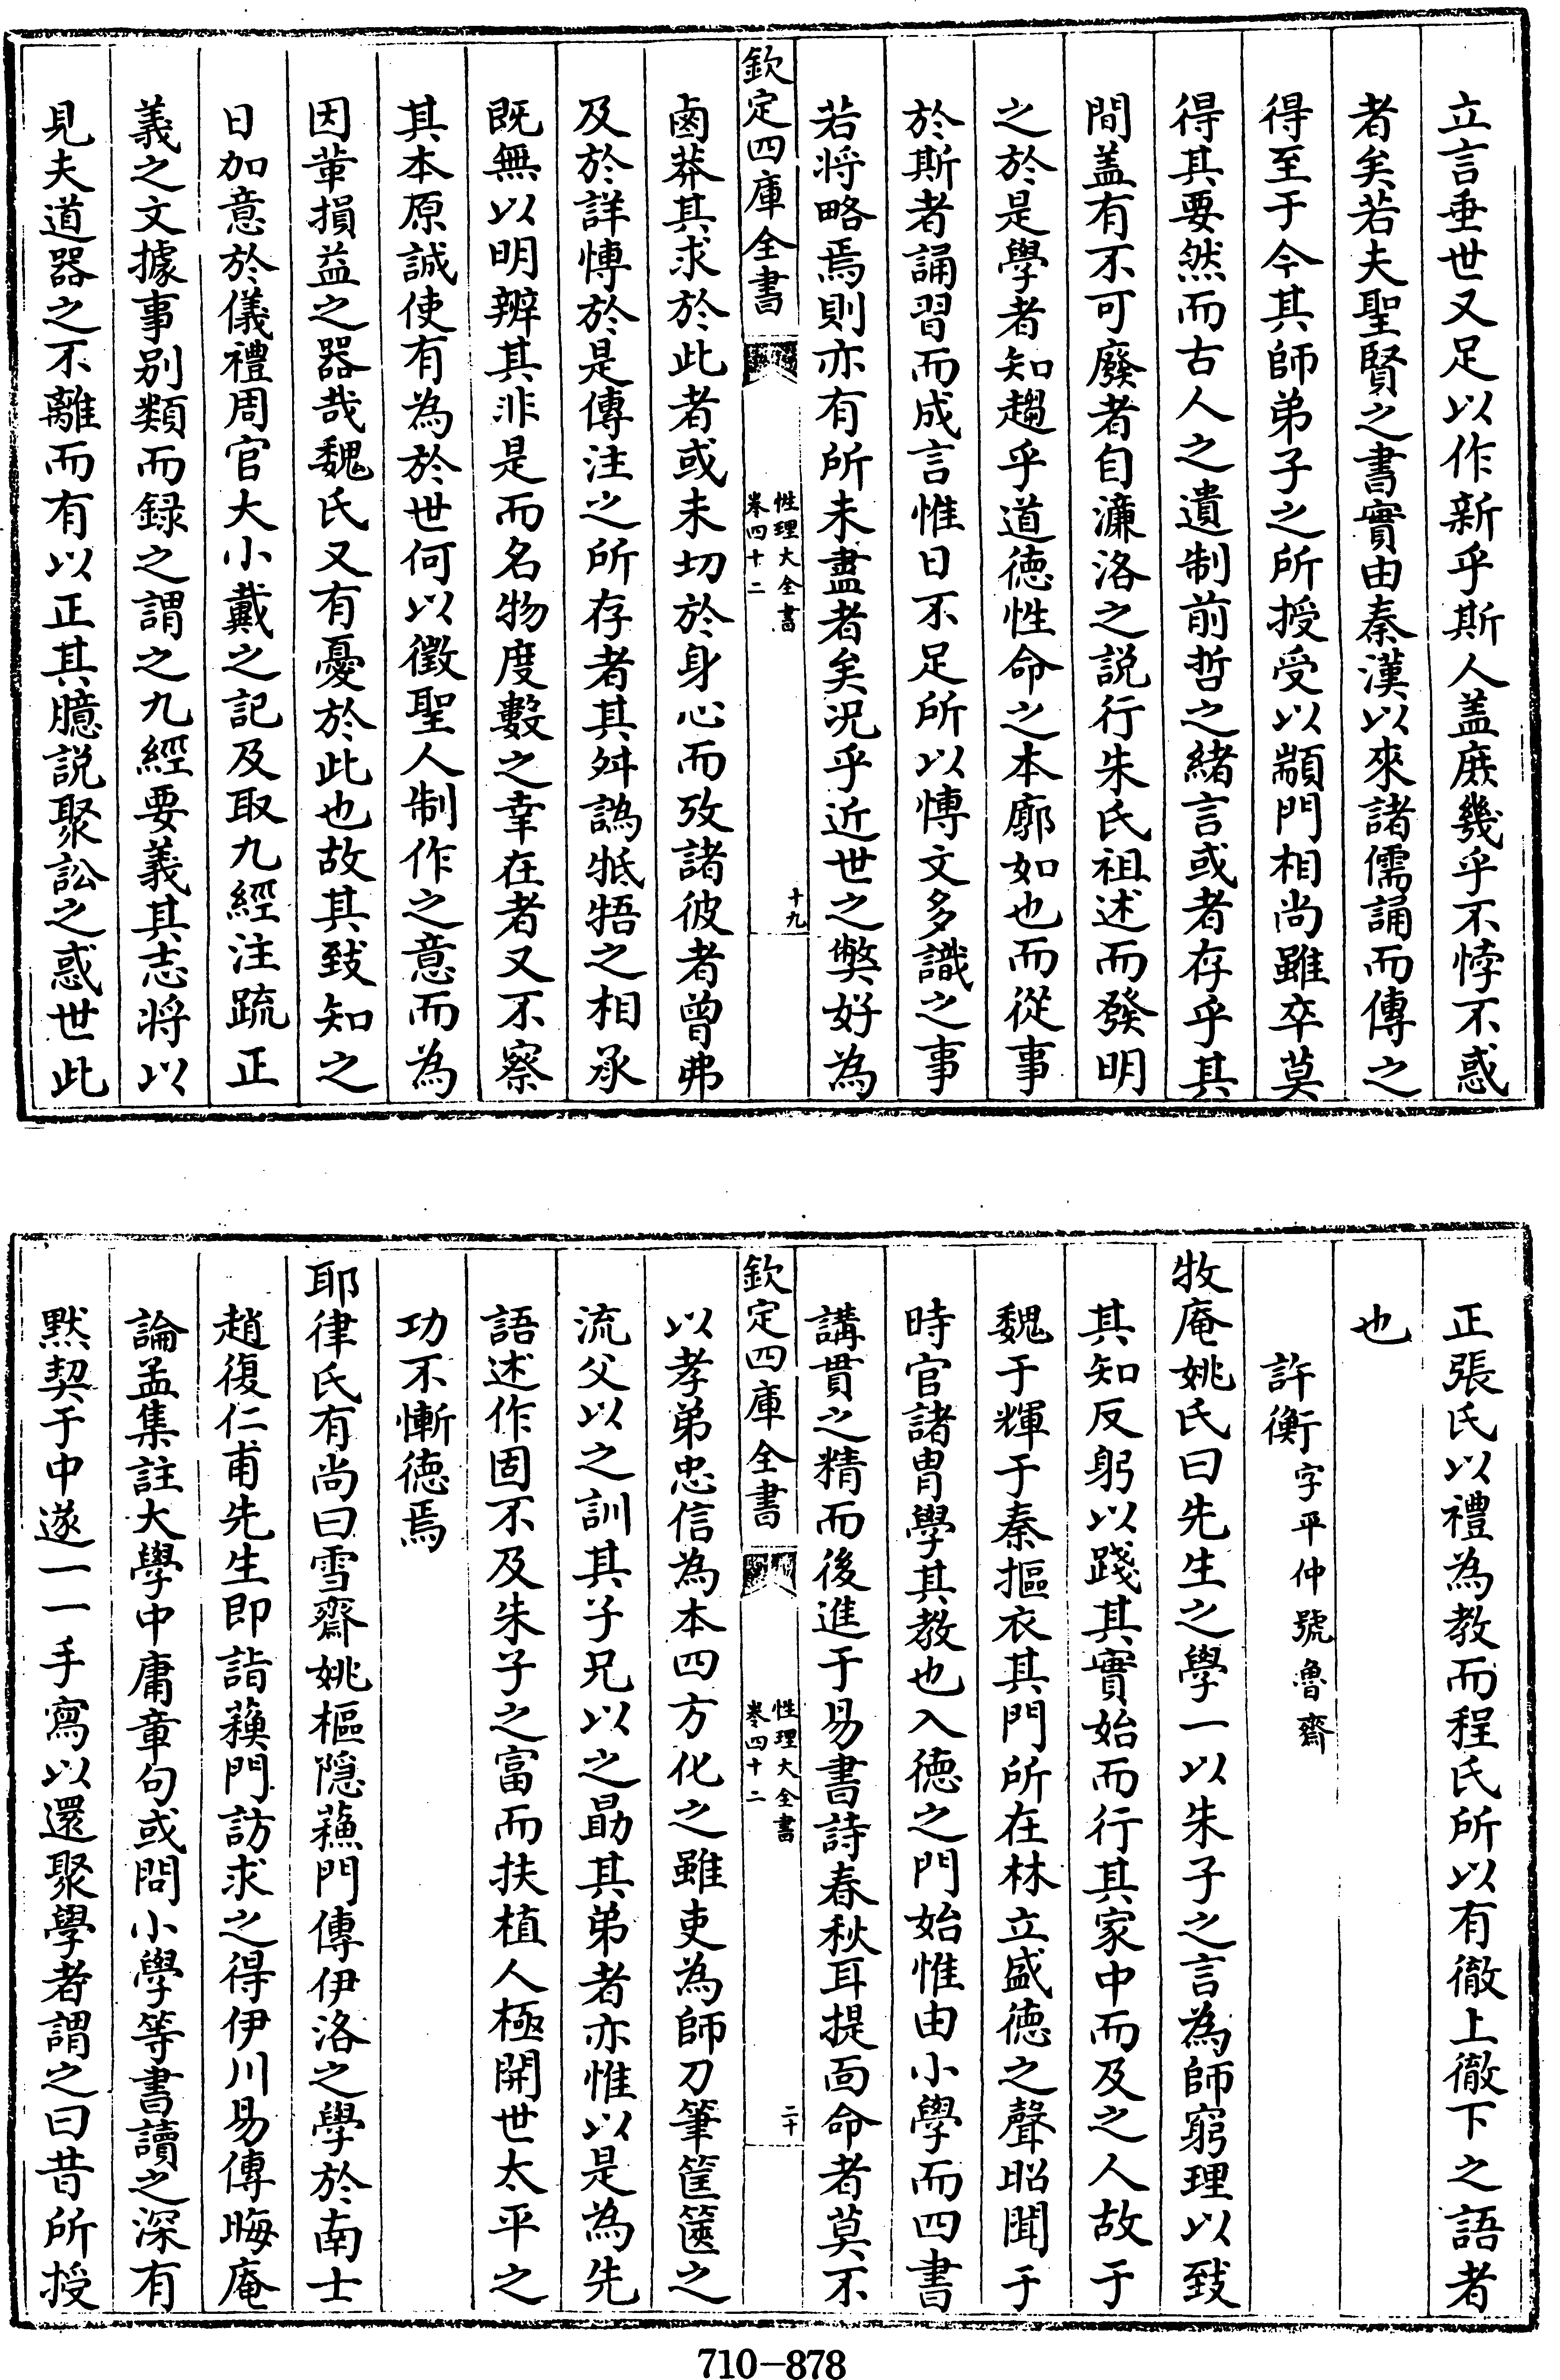 立言垂世又足以作新乎斯人盖庶幾乎不悖不惑
者矣若夫聖賢之書實由秦漢以來諸儒誦而傳之
得至于今其師弟子之所授受以顓門相尚雖卒莫
得其要然而古人之遺制前哲之緒言或者存乎其
間盖有不可廢者自濂洛之説行朱氏祖述而發明
之於是學者知趨乎道徳性命之本廓如也而從事
於斯者誦習而成言惟日不足所以慱文多識之事
若将略焉則亦有所未盡者矣况乎近世之弊好為
欽定四庫全書
性理大全書
卷四十二
十九
鹵莽其求於此者或未切於身心而攷諸彼者曾弗
及於詳慱於是傳注之所存者其舛譌牴牾之相承
既無以明辨其非是而名物度數之幸在者又不察
其本原誠使有為於世何以徴聖人制作之意而為
因革損益之器哉魏氏又有憂於此也故其致知之
日加意於儀禮周官大小戴之記及取九經注䟽正
義之文據事别類而録之謂之九經要義其志将以
見夫道器之不離而有以正其臆説聚訟之惑世此
正張氏以禮為教而程氏所以有徹上徹下之語者
也
許衡字平仲號魯齋
牧庵姚氏曰先生之學一以朱子之言為師窮理以致
其知反躬以踐其實始而行其家中而及之人故于
魏于輝于秦摳衣其門所在林立盛徳之聲昭聞于
時官諸胄學其教也入徳之門始惟由小學而四書
講貫之精而後進于易書詩春秋耳提面命者莫不
欽定四庫全書
性理大全書
卷四十二
二十
以孝弟忠信為本四方化之雖吏為師刀筆筐篋之
流父以之訓其子兄以之勗其弟者亦惟以是為先
語述作固不及朱子之富而扶植人極開世太平之
功不慚徳焉
耶律氏有尚曰雪齋姚樞隠蘓門傳伊洛之學於南士
趙復仁甫先生即詣蘓門訪求之得伊川易傳晦庵
論孟集註大學中庸章句或問小學等書讀之深有
黙契于中遂一一手寫以還聚學者謂之曰昔所授
710-878